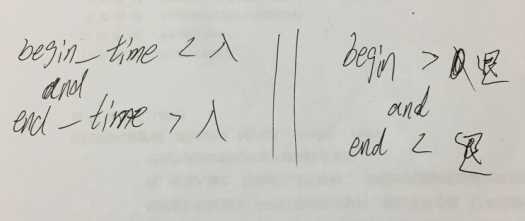 begin_time < 入
and
end_time > 入
||
begin > 退
and
end < 退